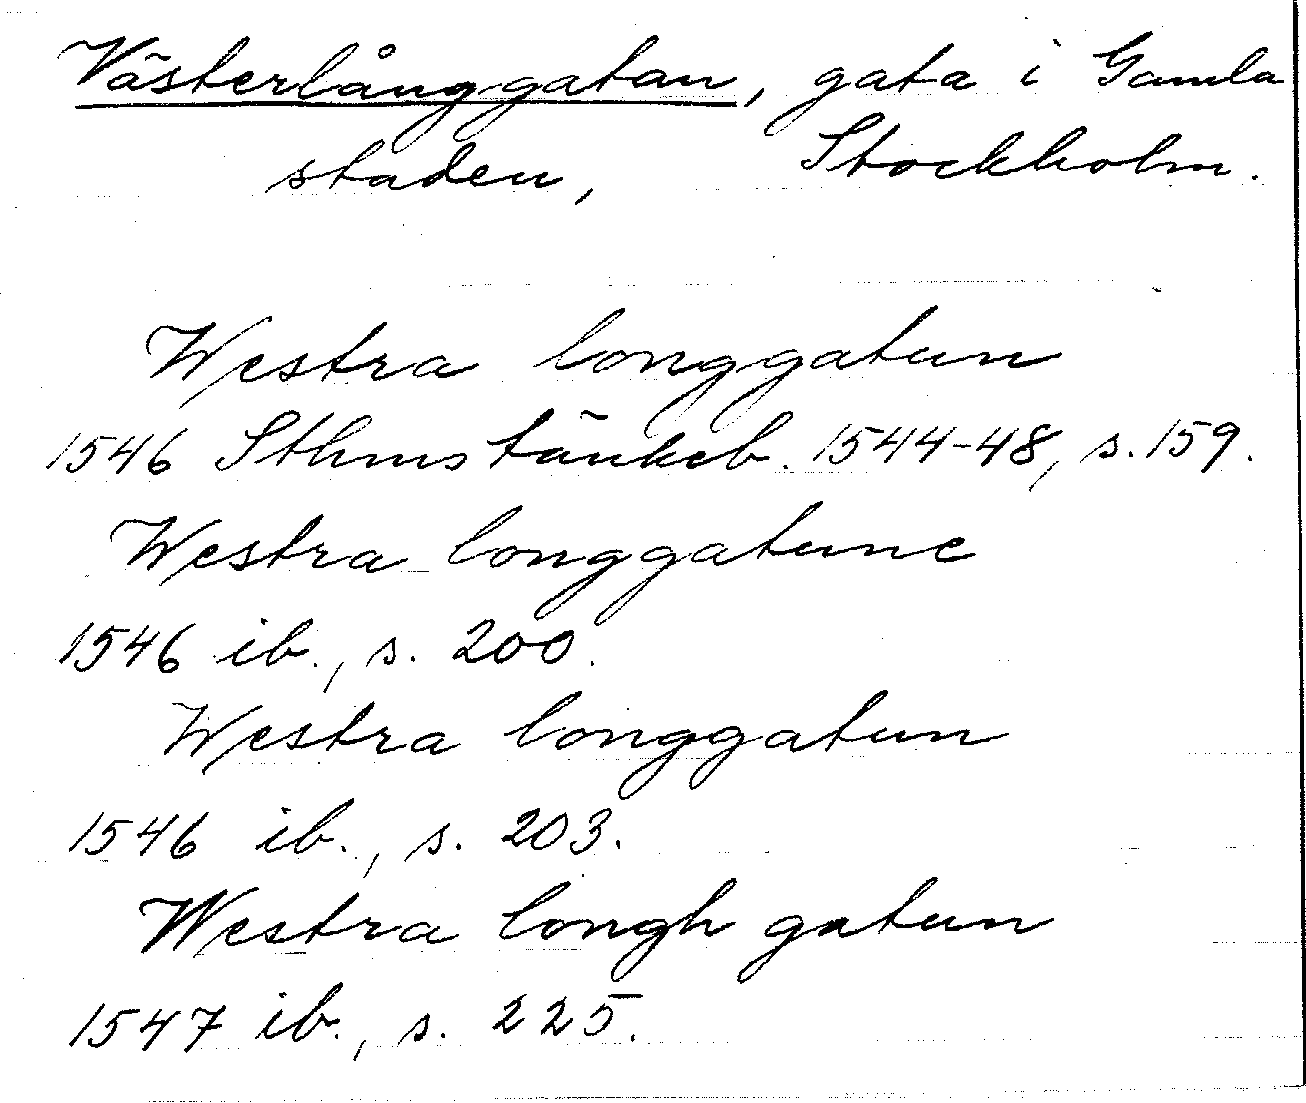 Västerlånggatan, gata i Gamla
staden, Stockholm.
Westra longgatun
1546 Sthms tänkeb. 1544-48, s. 159.
Westra longgatune
1546 ib., s. 200.
Westra longgatun
1546 ib., s. 203.
Westra longh gatun
1547 ib., s. 225.